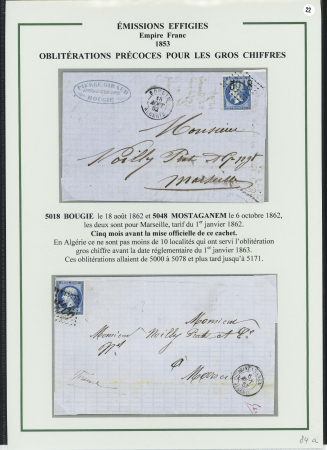 22
ÉMISSIONS EFFIGIES
Empire Franc
1853
OBLITÉRATIONS PRÉCOCES POUR LES GROS CHIFFRES
BOUGIE
18
AOUT
62
ALGERIE
5018
Monsieur
Noilly Prat
Marseille
5018 BOUGIE le 18 août 1862 et 5048 MOSTAGANEM le 6 octobre 1862,
les deux sont pour Marseille, tarif du 1er janvier 1862.
Cinq mois avant la mise officielle de ce cachet.
En Algérie ce ne sont pas moins de 10 localités qui ont servi l'oblitération
gros chiffre avant la date réglementaire du 1er janvier 1863.
Ces oblitérations allaient de 5000 à 5078 et plus tard jusqu'à 5171.
Monsieur
Monsieur Noilly Prat et Cie
à
Marseille
France
84 a